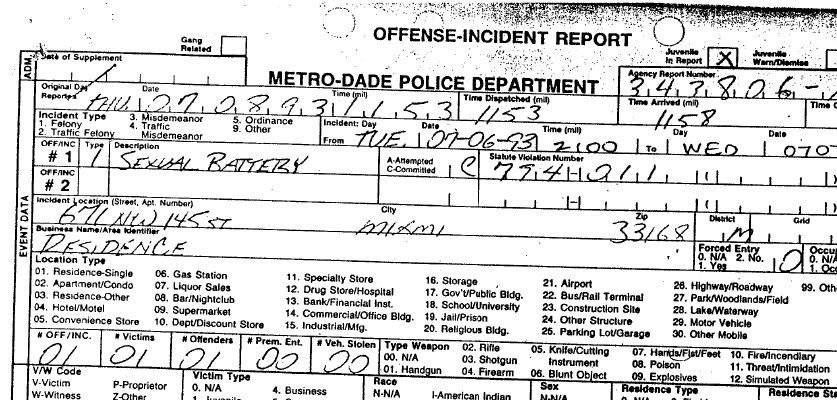 OFFENSE-INCIDENT REPORT
Gang Related
Juvenile In Report X
Juvenile Warn/Dismiss
ADM.
Date of Supplement
METRO-DADE POLICE DEPARTMENT
Agency Report Number
3 4 3 8 0 6 -
Original Day Reported Date Time (mil) Time Dispatched (mil) Time Arrived (mil)
THU 0 7 0 8 9 3 1 1 5 3 1153 1158
Incident Type
1. Felony
2. Traffic Felony
3. Misdemeanor
4. Traffic Misdemeanor
5. Ordinance
9. Other
Incident: Day Date Time (mil) Day Date
From TUE. 07-06-93 2100 To WED 070
OFF/INC # 1 Type 1 Description SEXUAL BATTERY
A-Attempted
C-Committed C
Statute Violation Number
794-011
OFF/INC # 2
EVENT DATA
Incident Location (Street, Apt. Number) City Zip District Grid
671 NW 145 ST MIAMI 33168 M
Business Name/Area Identifier
RESIDENCE
Forced Entry
0. N/A 2. No.
1. Yes
0
Location Type
01. Residence-Single
02. Apartment/Condo
03. Residence-Other
04. Hotel/Motel
05. Convenience Store
06. Gas Station
07. Liquor Sales
08. Bar/Nightclub
09. Supermarket
10. Dept/Discount Store
11. Specialty Store
12. Drug Store/Hospital
13. Bank/Financial Inst.
14. Commercial/Office Bldg.
15. Industrial/Mfg.
16. Storage
17. Gov't/Public Bldg.
18. School/University
19. Jail/Prison
20. Religious Bldg.
21. Airport
22. Bus/Rail Terminal
23. Construction Site
24. Other Structure
25. Parking Lot/Garage
26. Highway/Roadway
27. Park/Woodlands/Field
28. Lake/Waterway
29. Motor Vehicle
30. Other Mobile
99. Oth
# OFF/INC. # Victims # Offenders # Prem. Ent. # Veh. Stolen
01 01 01 00 00
Type Weapon
00. N/A
01. Handgun
02. Rifle
03. Shotgun
04. Firearm
05. Knife/Cutting Instrument
06. Blunt Object
07. Hands/Fist/Feet
08. Poison
09. Explosives
10. Fire/Incendiary
11. Threat/Intimidation
12. Simulated Weapon
V/W Code
V-Victim P-Proprietor
W-Witness Z-Other
Victim Type
0. N/A 4. Business
Race
N-N/A I-American Indian
Sex
N-N/A
Residence Type